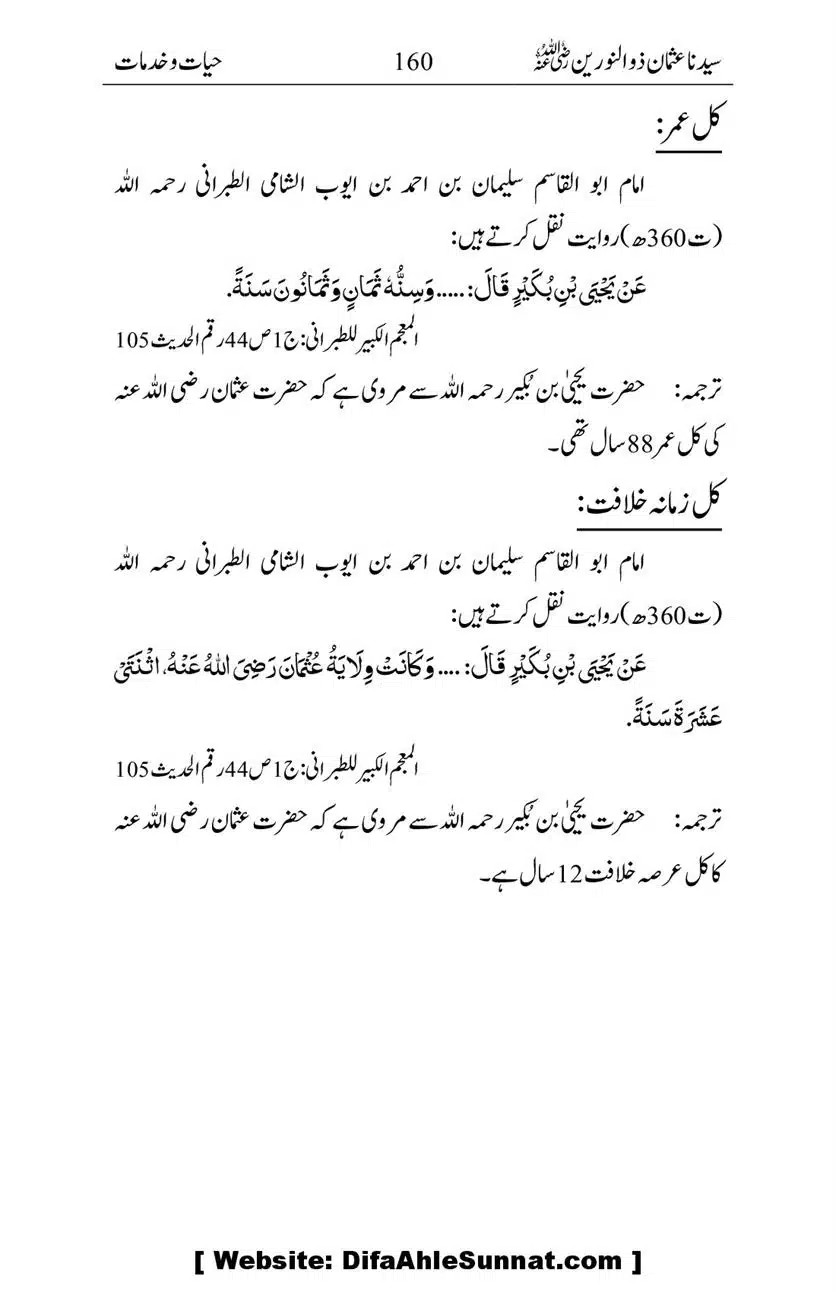 سیدنا عثمان ذوالنورین رضی اللہ عنہ 160 حیات و خدمات
کل عمر:
امام ابو القاسم سلیمان بن احمد بن ایوب الشامی الطبرانی رحمہ اللہ
(ت360ھ) روایت نقل کرتے ہیں:
عَنْ يَحْيَى بْنِ بُكَيْرٍ قَالَ: ..... وَسِنُّهٗ ثَمَانٍ وَثَمَانُونَ سَنَةً.
المعجم الکبیر للطبرانی: ج1 ص44 رقم الحدیث 105
ترجمہ: حضرت یحییٰ بن بُکیر رحمہ اللہ سے مروی ہے کہ حضرت عثمان رضی اللہ عنہ
کی کل عمر 88 سال تھی۔
کل زمانہ خلافت:
امام ابو القاسم سلیمان بن احمد بن ایوب الشامی الطبرانی رحمہ اللہ
(ت360ھ) روایت نقل کرتے ہیں:
عَنْ يَحْيَى بْنِ بُكَيْرٍ قَالَ: .... وَكَانَتْ وِلَايَةُ عُثْمَانَ رَضِيَ اللهُ عَنْهُ، اثْنَتَيْ
عَشَرَةَ سَنَةً.
المعجم الکبیر للطبرانی: ج1 ص44 رقم الحدیث 105
ترجمہ: حضرت یحییٰ بن بُکیر رحمہ اللہ سے مروی ہے کہ حضرت عثمان رضی اللہ عنہ
کا کل عرصہ خلافت 12 سال ہے۔
[ Website: DifaAhleSunnat.com ]